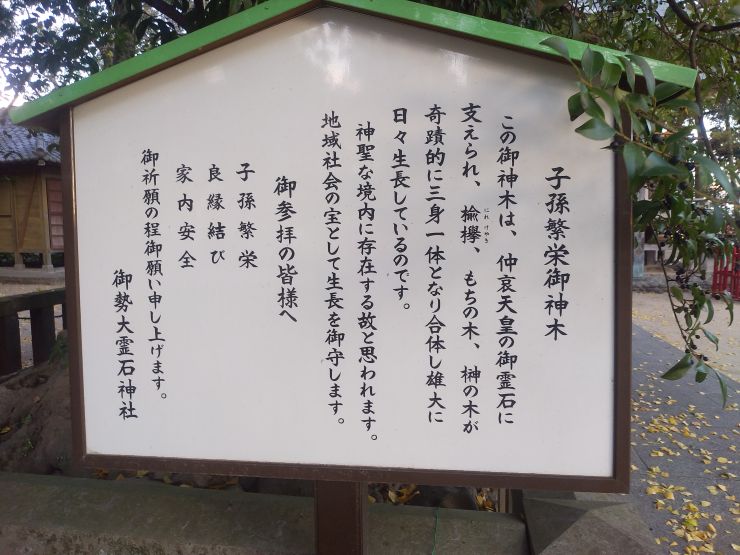 子孫繁栄御神木
この御神木は、仲哀天皇の御霊石に
支えられ、楡欅、もちの木、榊の木が
にれけやき
奇蹟的に三身一体となり合体し雄大に
日々生長しているのです。
神聖な境内に存在する故と思われます。
地域社会の宝として生長を御守します。
御参拝の皆様へ
子孫繁栄
良縁結び
家内安全
御祈願の程御願い申し上げます。
御勢大霊石神社